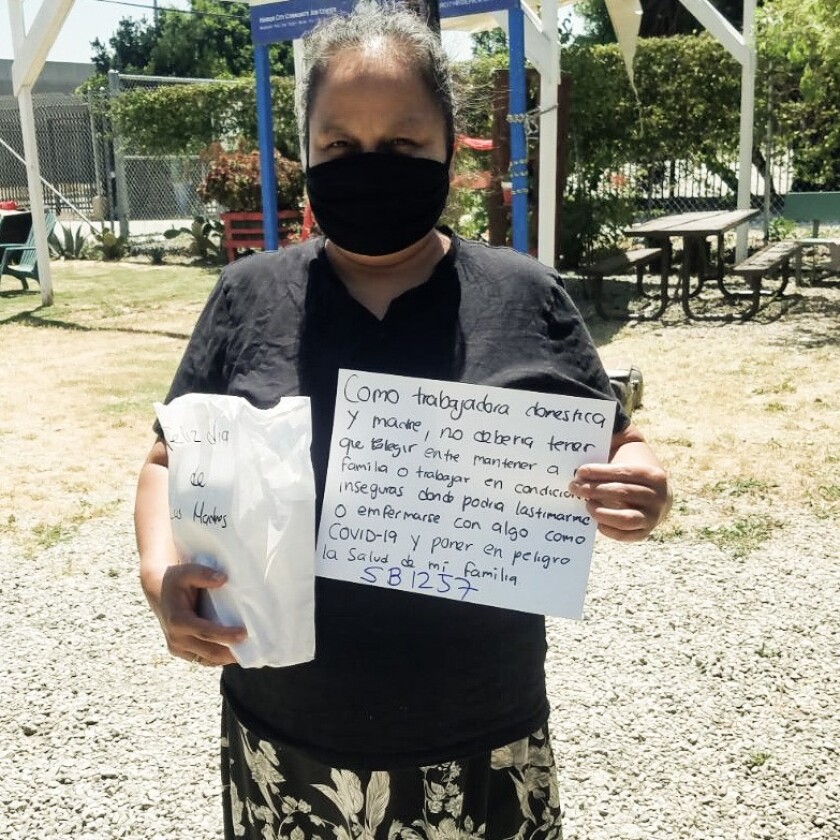 HARBOR CITY COMMUNITY JOB CENTER
Feliz dia
de
Las Madres
Como trabajadora domestica
Y madre, no deberia tener
que elegir entre mantener a
familia o trabajar en
inseguras donde podria lastimarme
O enfermarse con algo como
COVID-19 y poner en peligro
la salud de mi familia
SB1257